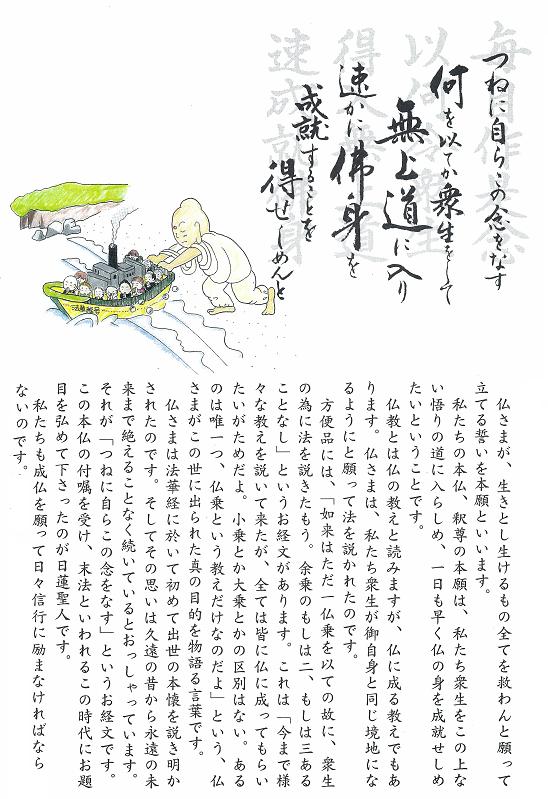 毎自作是念
以何令衆生
得入無上道
速成就佛身
つねに自らこの念をなす
何を以てか衆生をして
無上道に入り
速かに佛身を
成就することを
得せしめんと
仏さまが、生きとし生けるもの全てを救わんと願って
立てる誓いを本願といいます。
私たちの本仏、釈尊の本願は、私たち衆生をこの上な
い悟りの道に入らしめ、一日も早く仏の身を成就せしめ
たいということです。
仏教とは仏の教えと読みますが、仏に成る教えでもあ
ります。仏さまは、私たち衆生が御自身と同じ境地にな
るようにと願って法を説かれたのです。
方便品には、「如来はただ一仏乗を以ての故に、衆生
の為に法を説きたもう。余乗のもしは二、もしは三ある
ことなし」というお経文があります。これは「今まで様
々な教えを説いて来たが、全ては皆に仏に成ってもらい
たいがためだよ。小乗とか大乗とかの区別はない。ある
のは唯一つ、仏乗という教えだけなのだよ」という、仏
さまがこの世に出られた真の目的を物語る言葉です。
仏さまは法華経に於いて初めて出世の本懐を説き明か
されたのです。そしてその思いは久遠の昔から永遠の未
来まで絶えることなく続いているとおっしゃっています。
それが「つねに自らこの念をなす」というお経文です。
この本仏の付嘱を受け、末法といわれるこの時代にお題
目を弘めて下さったのが日蓮聖人です。
私たちも成仏を願って日々信行に励まなければなら
ないのです。